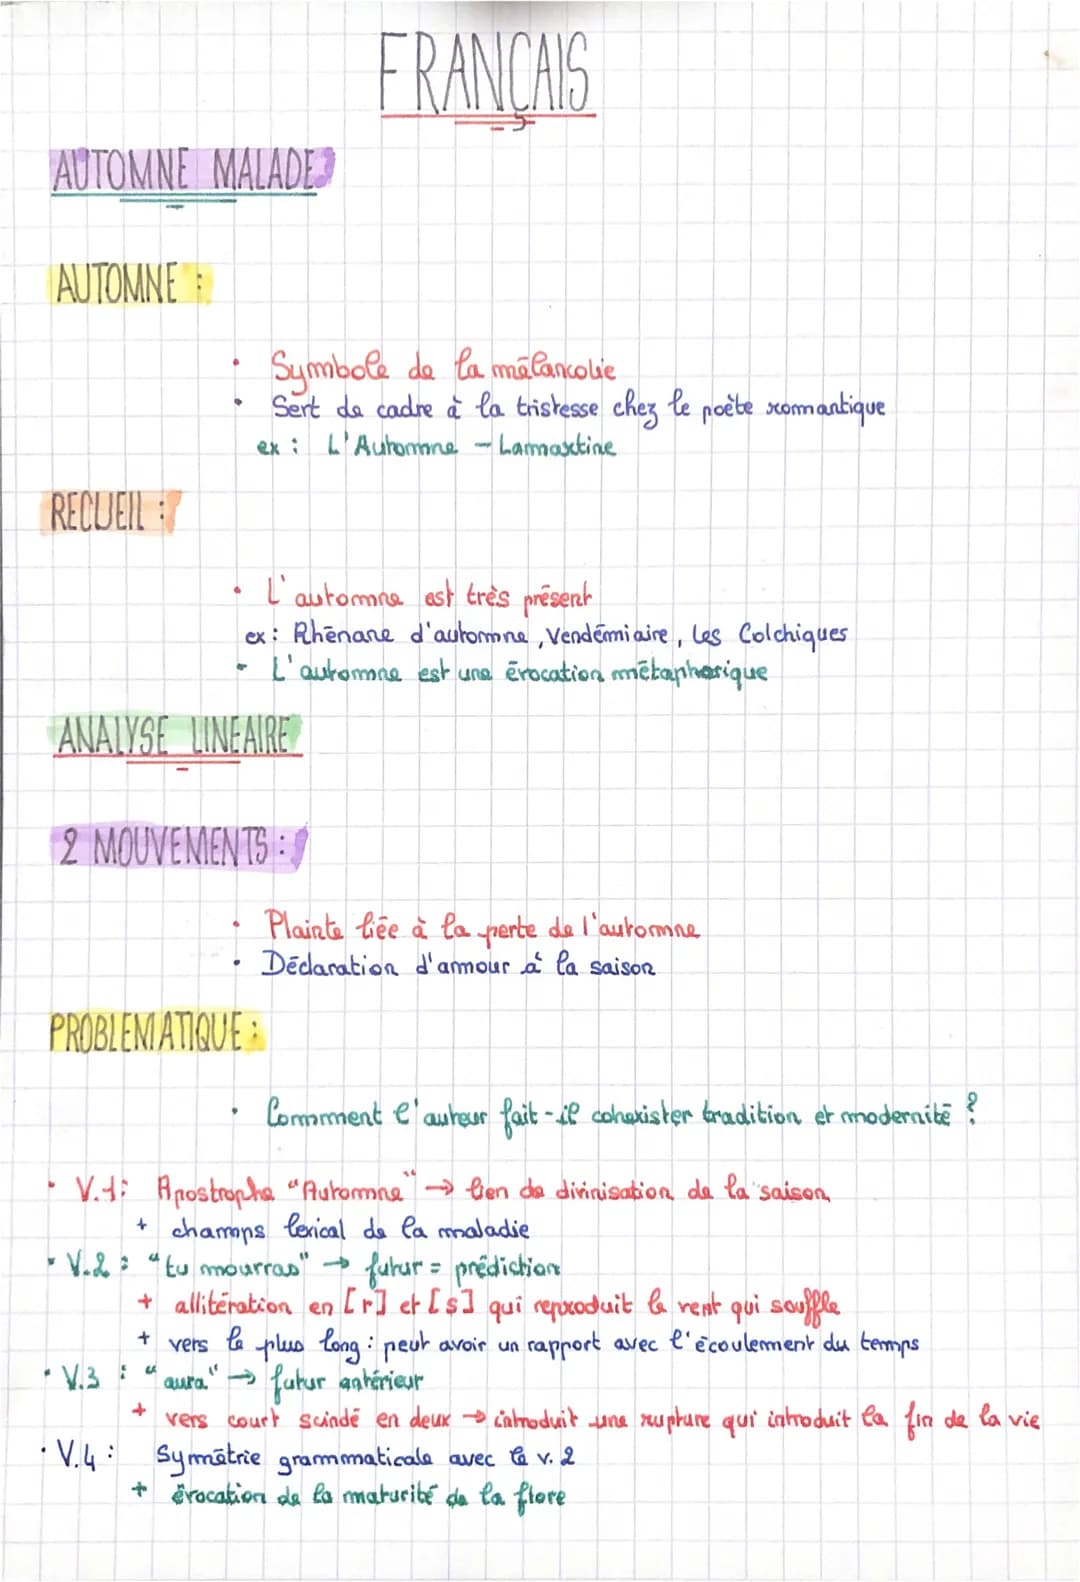 FRANÇAIS
AUTOMNE MALADE
AUTOMNE :
• Symbole de la mélancolie
• Sert de cadre à la tristesse chez le poète rommantique
ex : L'Automne - Lamartine
RECUEIL :
• L'automne est très présent
ex : Rhénane d'automne, Vendémiaire, Les Colchiques
- L'automne est une évocation métaphorique
ANALYSE LINEAIRE
2 MOUVEMENTS :
• Plainte liée à la perte de l'automne
• Déclaration d'amour à la saison
PROBLEMATIQUE :
• Comment l'auteur fait-il cohexister tradition et modernité ?
• V.1 : Apostrophe "Automne" → lien de divinisation de la saison
+ champs lexical de la maladie
• V.2 : "tu mourras" → futur = prédiction
+ allitération en [r] et [s] qui reproduit le vent qui souffle
+ vers le plus long : peut avoir un rapport avec l'écoulement du temps
• V.3 : "aura" → futur antérieur
+ vers court scindé en deux → introduit une rupture qui introduit la fin de la vie
• V.4 : Symétrie grammaticale avec le v. 2
+ évocation de la maturité de la flore